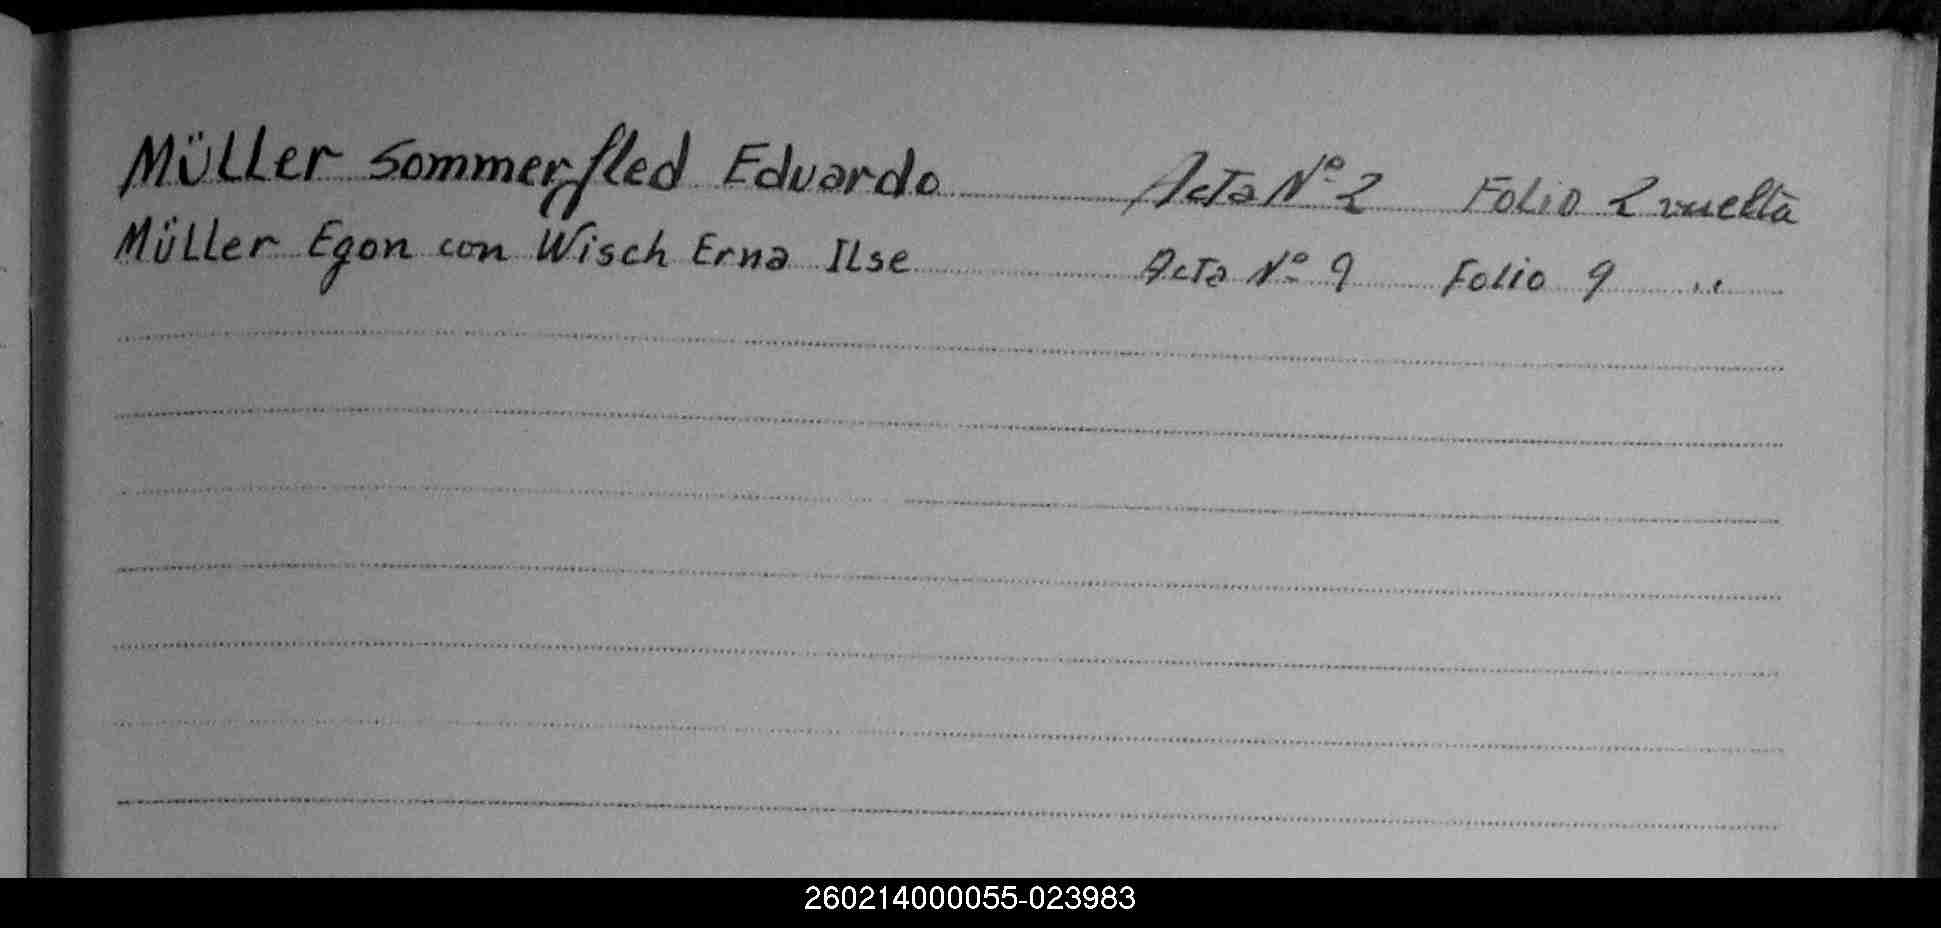 Müller Sommerfled Eduardo Acta Nº 2 Folio 2 vuelta
Müller Egon con Wisch Erna Ilse Acta Nº 9 Folio 9 "
260214000055-023983